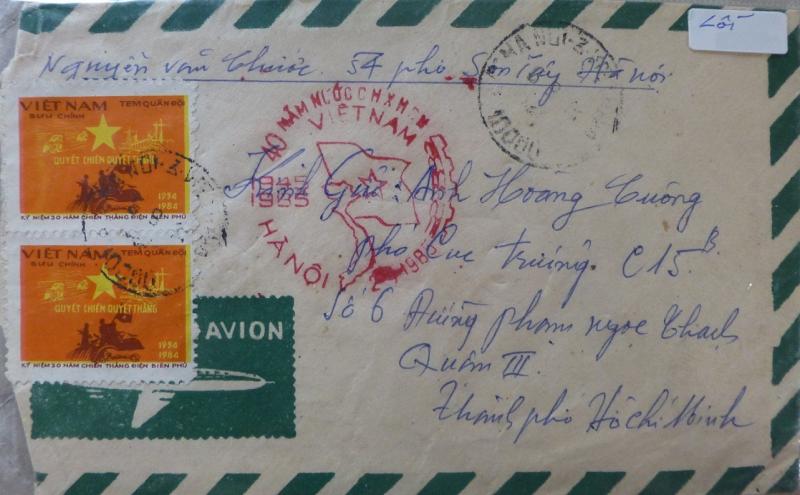 Lỗi
Nguyễn văn Chước. 54 phố Sơn Tây Hà nội
HA NOI-Z.VE
10000
VIỆT NAM TEM QUÂN ĐỘI
BƯU CHÍNH
QUYẾT CHIẾN QUYẾT THẮNG
1954
1984
KỶ NIỆM 30 NĂM CHIẾN THẮNG ĐIỆN BIÊN PHỦ
40 NĂM NƯỚC CHXHCN
VIỆTNAM
1945
1985
HÀNỘI
Kính Gửi: Anh Hoàng Cường
phó Cục trưởng. C15B
VIỆT NAM TEM QUÂN ĐỘI
BƯU CHÍNH
QUYẾT CHIẾN QUYẾT THẮNG
1954
1984
KỶ NIỆM 30 NĂM CHIẾN THẮNG ĐIỆN BIÊN PHỦ
AVION
Số 6 Đường phạm ngọc Thạch
Quận III.
Thành phố Hồ Chí Minh